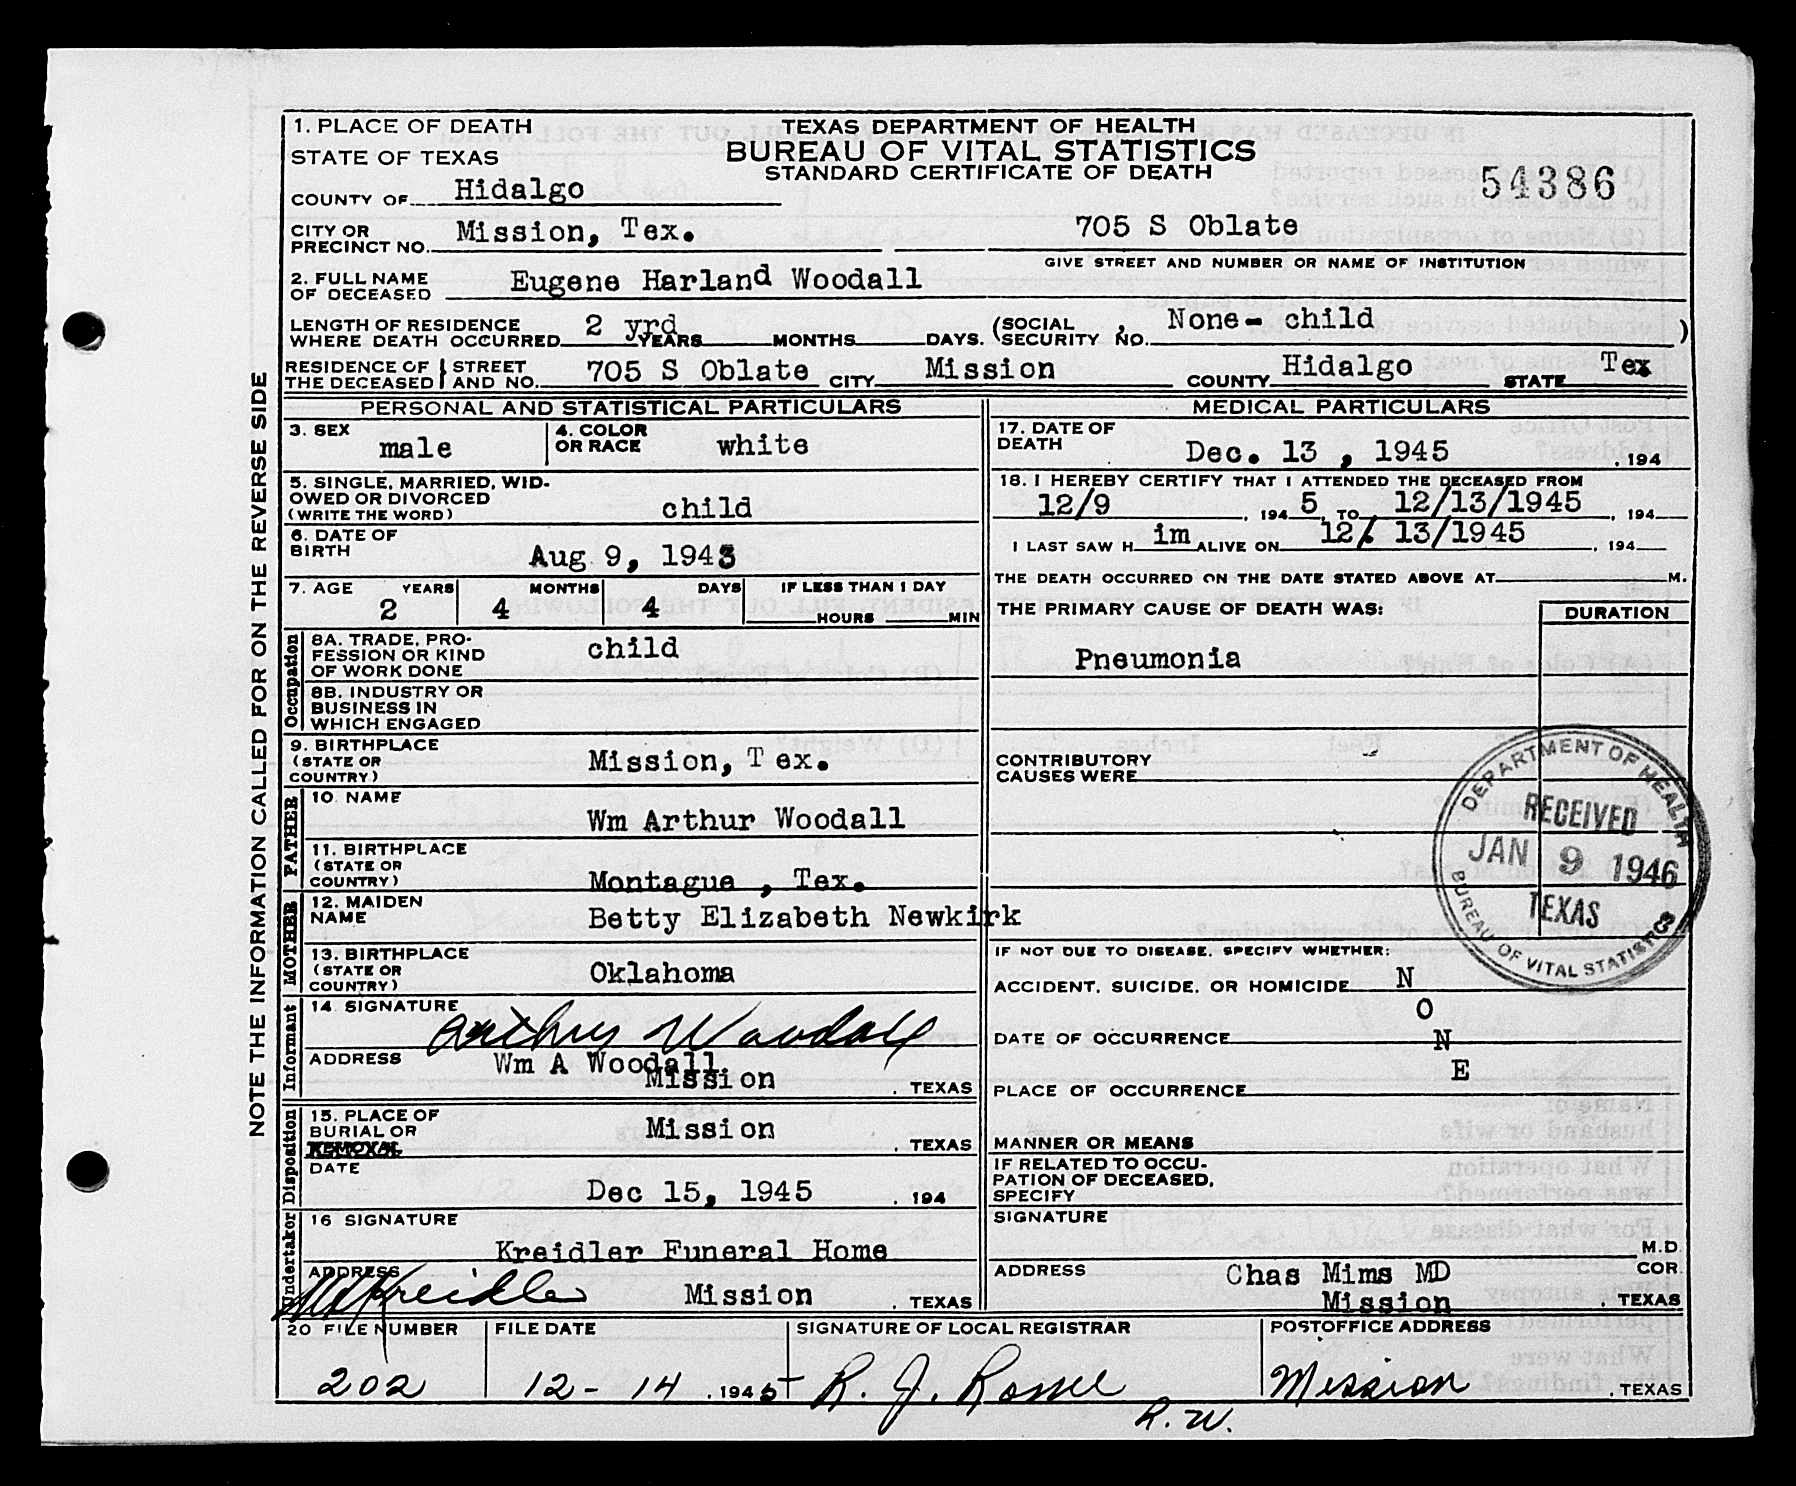 1. PLACE OF DEATH
STATE OF TEXAS
COUNTY OF Hidalgo
TEXAS DEPARTMENT OF HEALTH
BUREAU OF VITAL STATISTICS
STANDARD CERTIFICATE OF DEATH
54386
CITY OR
PRECINCT NO. Mission, Tex. 705 S Oblate
GIVE STREET AND NUMBER OR NAME OF INSTITUTION
2. FULL NAME
OF DECEASED Eugene Harland Woodall
LENGTH OF RESIDENCE
WHERE DEATH OCCURRED 2 yrd YEARS MONTHS DAYS. (SOCIAL SECURITY NO. None- child )
RESIDENCE OF THE DECEASED STREET AND NO. 705 S Oblate CITY Mission COUNTY Hidalgo STATE Tex
NOTE THE INFORMATION CALLED FOR ON THE REVERSE SIDE
PERSONAL AND STATISTICAL PARTICULARS
3. SEX male
4. COLOR OR RACE white
5. SINGLE, MARRIED, WID-
OWED OR DIVORCED
(WRITE THE WORD) child
6. DATE OF
BIRTH Aug 9, 1943
7. AGE 2 YEARS 4 MONTHS 4 DAYS IF LESS THAN 1 DAY
HOURS MIN
Occupation
8A. TRADE, PRO-
FESSION OR KIND
OF WORK DONE child
8B. INDUSTRY OR
BUSINESS IN
WHICH ENGAGED
9. BIRTHPLACE
(STATE OR
COUNTRY) Mission, Tex.
FATHER
10. NAME Wm Arthur Woodall
11. BIRTHPLACE
(STATE OR
COUNTRY) Montague , Tex.
MOTHER
12. MAIDEN
NAME Betty Elizabeth Newkirk
13. BIRTHPLACE
(STATE OR
COUNTRY) Oklahoma
Informant
14 SIGNATURE Arthur Woodall
ADDRESS Wm A Woodall
Mission . TEXAS
Disposition
15. PLACE OF
BURIAL OR
REMOVAL Mission . TEXAS
DATE
Dec 15, 1945 . 194
Undertaker
16 SIGNATURE
Kreidler Funeral Home
ADDRESS
Kreidler Mission . TEXAS
MEDICAL PARTICULARS
17. DATE OF
DEATH Dec. 13 , 1945 , 194
18. I HEREBY CERTIFY THAT I ATTENDED THE DECEASED FROM
12/9 , 194 5 TO 12/13/1945 , 194
I LAST SAW H im ALIVE ON 12/ 13/1945 , 194
THE DEATH OCCURRED ON THE DATE STATED ABOVE AT M.
THE PRIMARY CAUSE OF DEATH WAS: DURATION
Pneumonia
CONTRIBUTORY
CAUSES WERE
DEPARTMENT OF HEALTH
RECEIVED
JAN 9 1946
TEXAS
BUREAU OF VITAL STATISTICS
IF NOT DUE TO DISEASE, SPECIFY WHETHER:
ACCIDENT, SUICIDE, OR HOMICIDE N
O
DATE OF OCCURRENCE N
E
PLACE OF OCCURRENCE
MANNER OR MEANS
IF RELATED TO OCCU-
PATION OF DECEASED,
SPECIFY
SIGNATURE
M.D.
COR.
ADDRESS Chas Mims MD
Mission . TEXAS
20 FILE NUMBER FILE DATE SIGNATURE OF LOCAL REGISTRAR POSTOFFICE ADDRESS
202 12-14 , 1945 R. J. Mission . TEXAS
R.W.